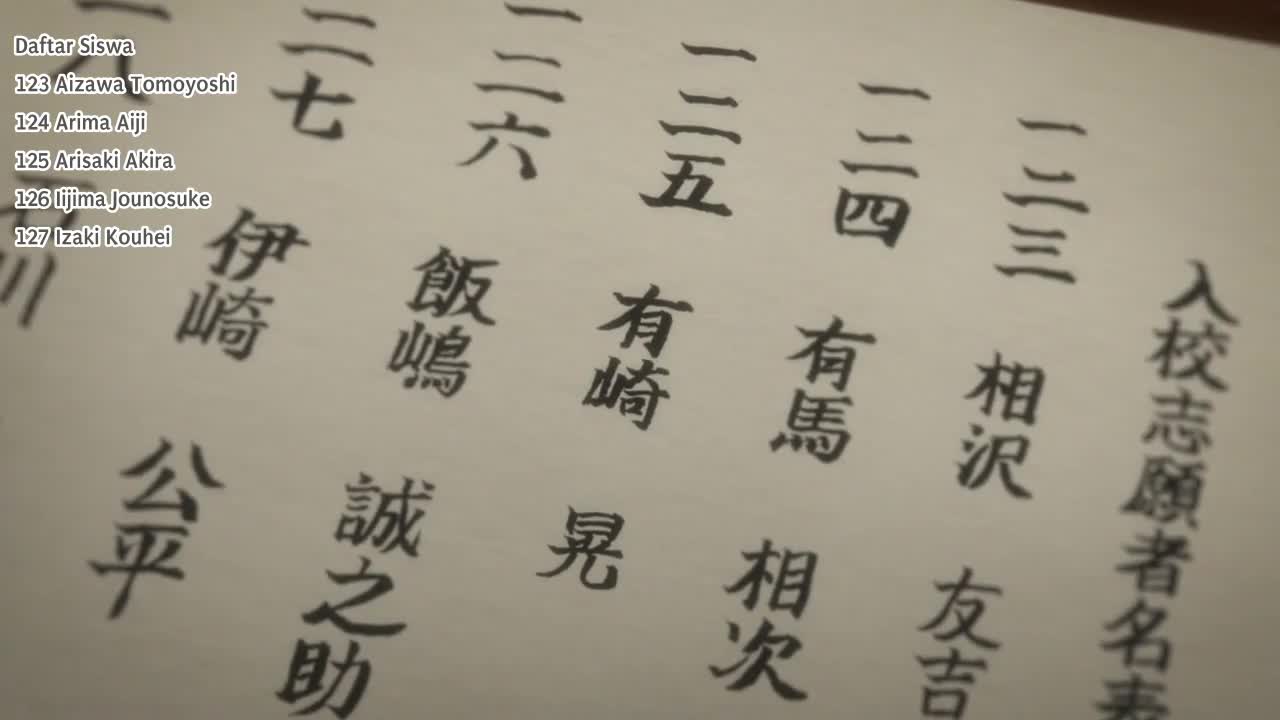 Daftar Siswa
123 Aizawa Tomoyoshi
124 Arima Aiji
125 Arisaki Akira
126 Iijima Jounosuke
127 Izaki Kouhei
入校志願者名表
一二三 相沢 友吉
一二四 有馬 相次
一二五 有崎 晃
一二六 飯嶋 誠之助
一二七 伊崎 公平
八 石川